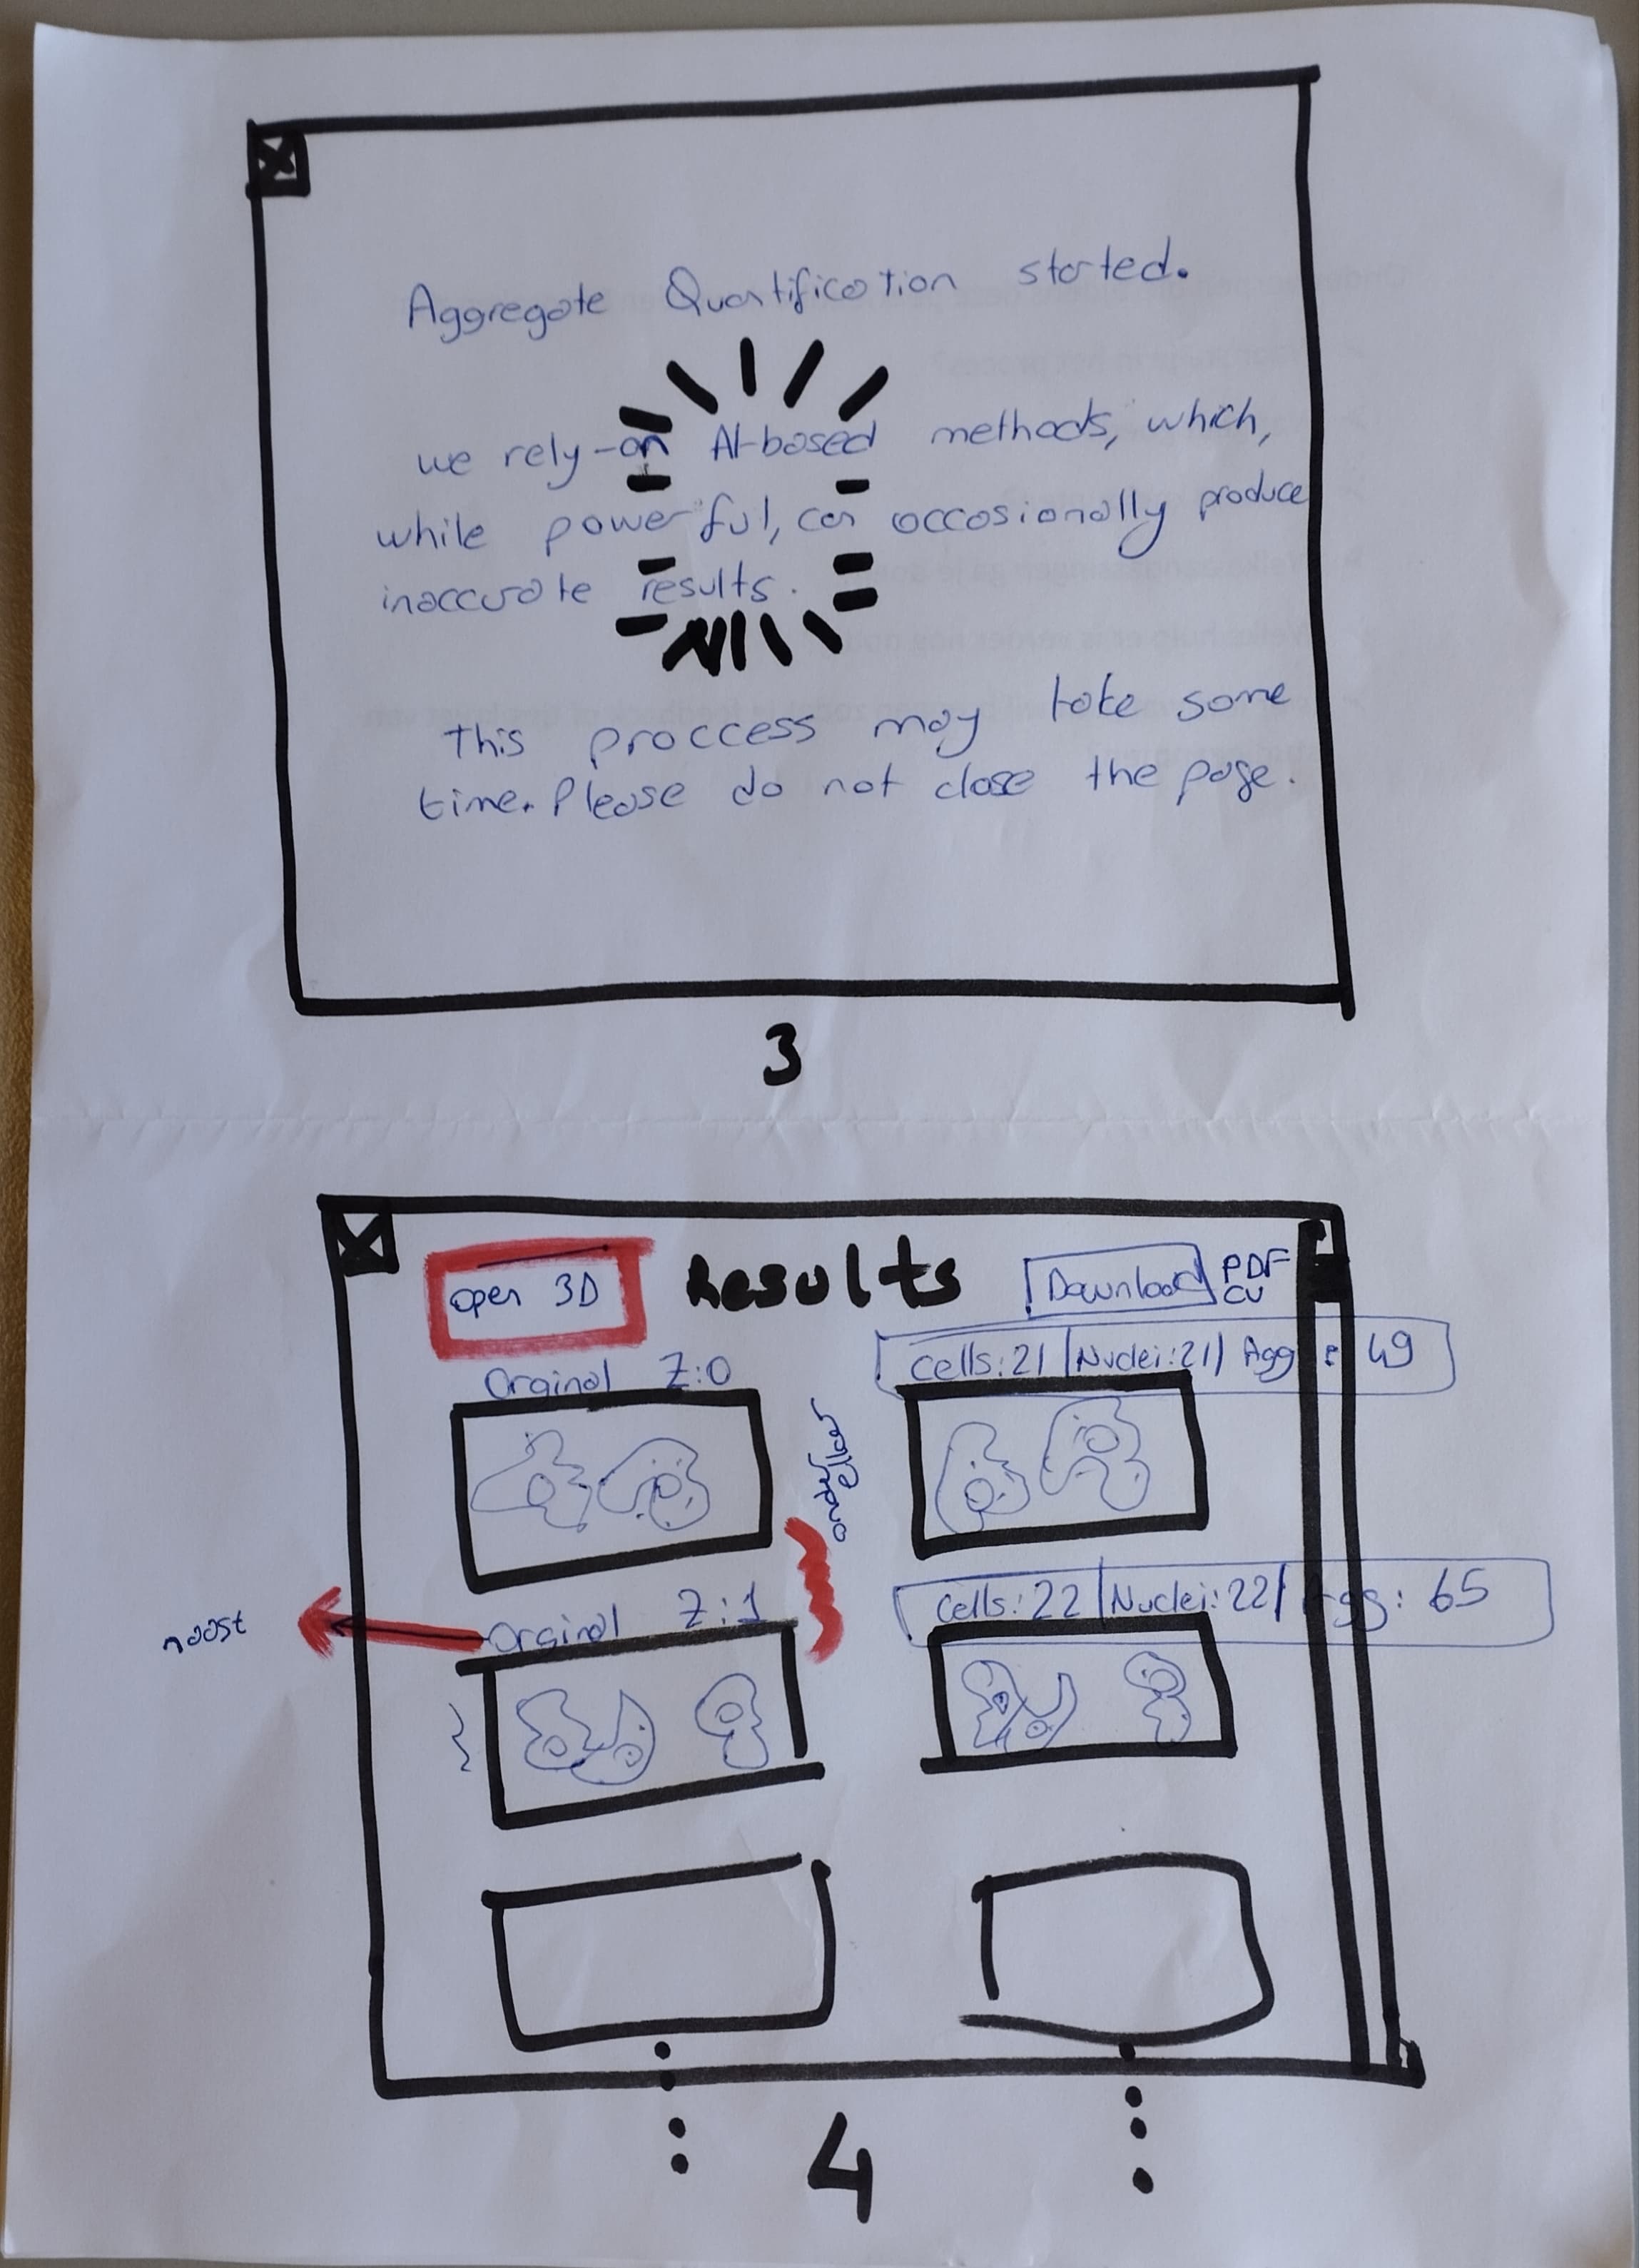 Aggregate Quantification started.
we rely-on AI-based methods, which,
while powerful, can occasionally produce
inaccurate results.
This proccess may take some
time. Please do not close the page.
3
open 3D
Results
Download
PDF
CV
Orginal Z:0
Cells:21 | Nuclei:21 | Agg : 49
onder elkaar
naast
Orginal Z:1
Cells:22 | Nuclei:22 | Agg: 65
4